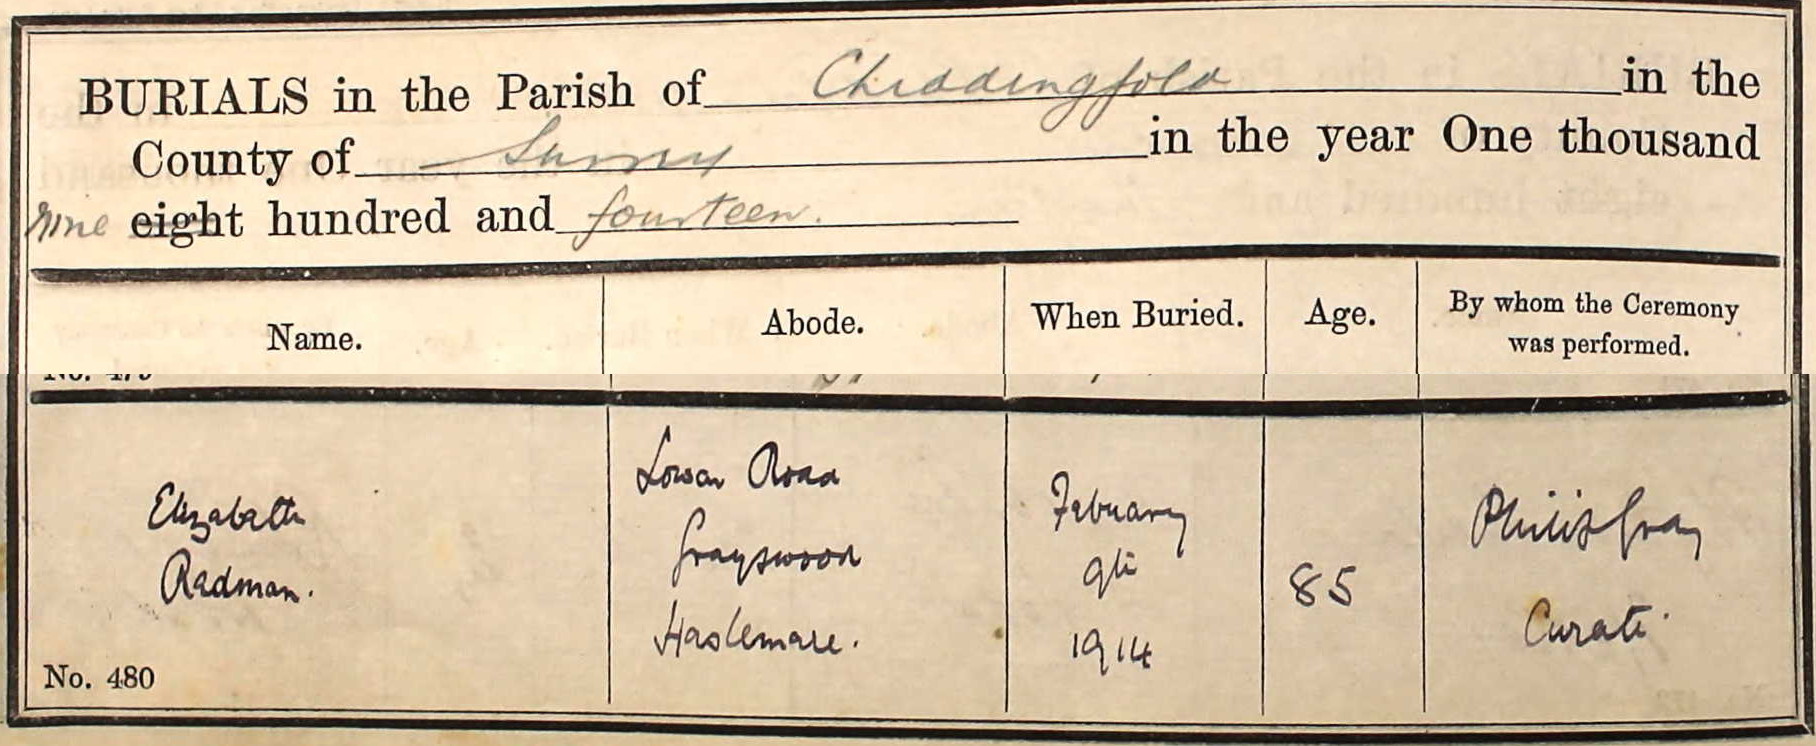 BURIALS in the Parish of Chiddingfold in the
County of Surrey in the year One thousand
nine eight hundred and fourteen.
Name. Abode. When Buried. Age. By whom the Ceremony was performed.
Elizabeth
Redman.
No. 480
Lower Road
Grayswood
Haslemere.
February
9th
1914
85
Philip Gray
Curate.